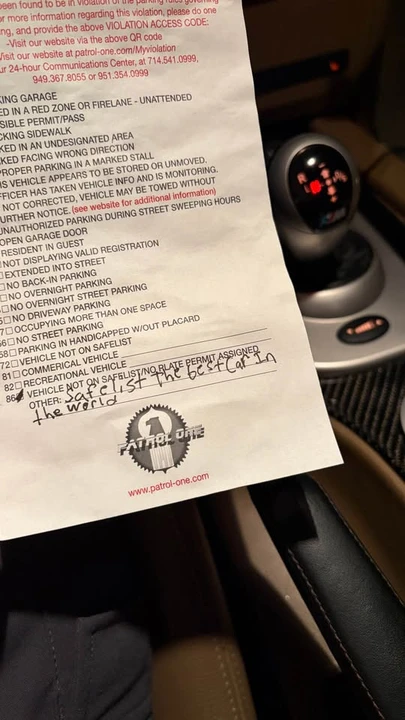 been found to be in violation of the parking rules governing
or more information regarding this violation, please do one
ng, and provide the above VIOLATION ACCESS CODE:
-Visit our website via the above QR code
Visit our website at patrol-one.com/Myviolation
ur 24-hour Communications Center, at 714.541.0999,
949.367.8055 or 951.354.0999
KING GARAGE
ED IN A RED ZONE OR FIRELANE - UNATTENDED
SIBLE PERMIT/PASS
CKING SIDEWALK
KED IN AN UNDESIGNATED AREA
KED FACING WRONG DIRECTION
PROPER PARKING IN A MARKED STALL
IS VEHICLE APPEARS TO BE STORED OR UNMOVED.
FFICER HAS TAKEN VEHICLE INFO AND IS MONITORING.
NOT CORRECTED, VEHICLE MAY BE TOWED WITHOUT
URTHER NOTICE. (see website for additional information)
UNAUTHORIZED PARKING DURING STREET SWEEPING HOURS
OPEN GARAGE DOOR
RESIDENT IN GUEST
NOT DISPLAYING VALID REGISTRATION
EXTENDED INTO STREET
NO BACK-IN PARKING
NO OVERNIGHT PARKING
NO OVERNIGHT STREET PARKING
NO DRIVEWAY PARKING
OCCUPYING MORE THAN ONE SPACE
NO STREET PARKING
58 PARKING IN HANDICAPPED W/OUT PLACARD
72 VEHICLE NOT ON SAFELIST
81 COMMERICAL VEHICLE
82 RECREATIONAL VEHICLE
86 VEHICLE NOT ON SAFELIST/NO PLATE PERMIT ASSIGNED
OTHER: safelist The best Car In
the world
1
PATROL ONE
www.patrol-one.com